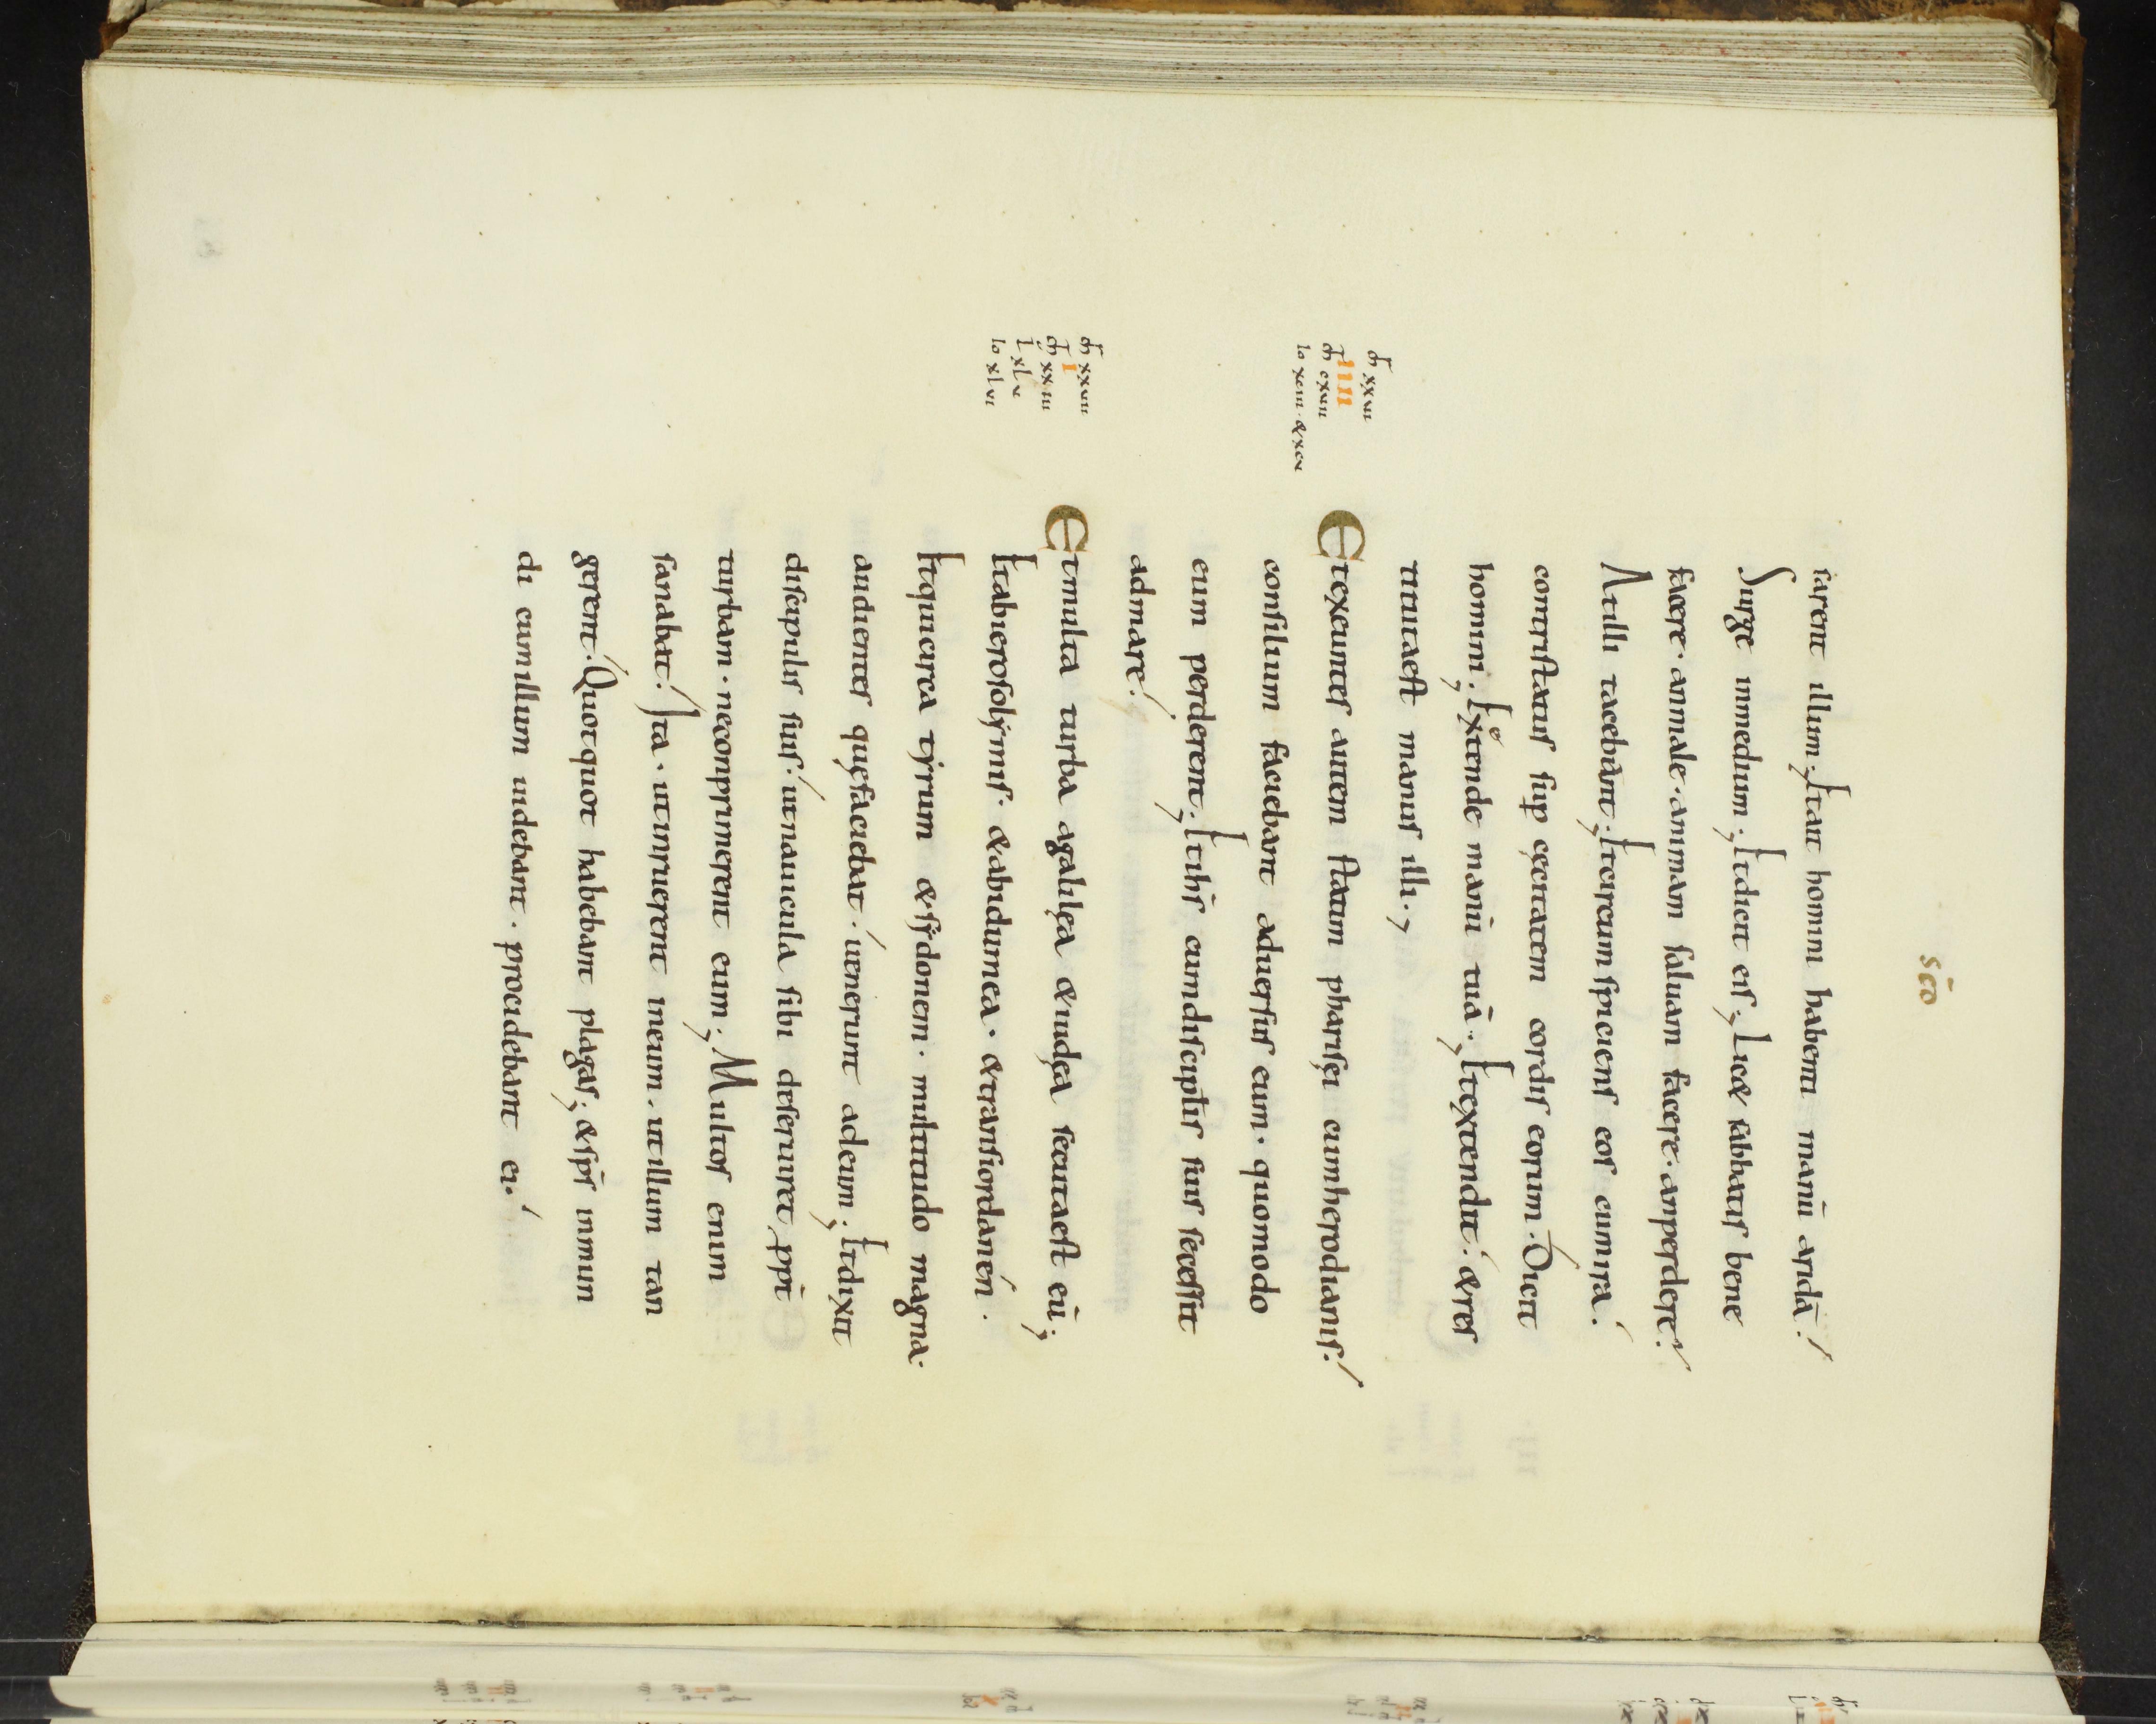 sc̄o
sarent illum; Et ait homini habenti manū aridā.
Surge inmedium; Et dicit eis; Licet sabbatis bene
facere. an male. animam saluam facere. an perdere?
At illi tacebant; Et circumspiciens eos cumira.
contristatus sup cęcitatem cordis eorum. Dicit
homini; Extende manū tuā; Et extendit. & res
tituta est manus illi;
Etexeuntes autem statim pharisęi cumherodianis.
consilium faciebant aduersus eum. quomodo
eum perderent; Etih̄s cumdiscipulis suis secessit
admare.
Etmulta turba agalilęa & iudęa secutaest eū;
Etabierosolẏmis. & abidumea. & transiordanén.
Etquicirca tẏrum & sẏdonem. multitudo magna.
audientes quęfaciebat. uenerunt adeum; Etdixit
discipulis suis. utnauicula sibi deseruiret ppt̄
turbam. neconprimerent eum; Multos enim
sanabat. Ita. utinruerent ineum. utillum tan
gerent. Quotquot habebant plagas; & sp̄s inmun
di cumillum uidebant. procidebant ei.
xxvi
IIII
cxvii
lo xciii. & xcv
xxvii
I
xxiii
l xlv
lo xlvi